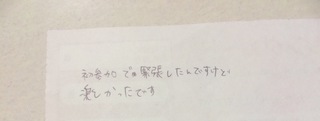 初参加で緊張したんですけど
楽しかったです